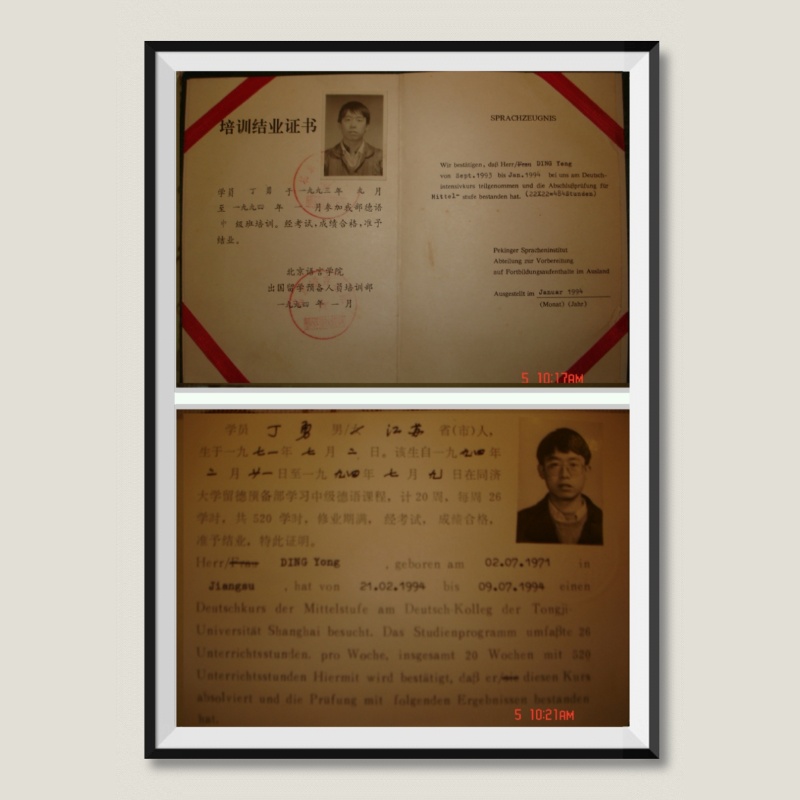 培训结业证书
学员 丁 勇 于一九九三年 九 月
至 一九九四 年 一 月参加我部德语
中 级班培训。经考试,成绩合格,准予
结业。
北京语言学院
出国留学预备人员培训部
一九九四 年 一 月
SPRACHZEUGNIS
Wir bestätigen, daß Herr/Frau DING Yong
von Sept.1993 bis Jan.1994 bei uns am Deutsch-
intensivkurs teilgenommen und die Abschlußprüfung für
Mittel- stufe bestanden hat. (22X22=484Stunden)
Pekinger Spracheninstitut
Abteilung zur Vorbereitung
auf Fortbildungsaufenthalte im Ausland
Ausgestellt im Januar 1994
(Monat) (Jahr)
5 10:17AM
学员 丁 勇 男/女 江苏 省(市)人,
生于一九七一年 七 月 二 日。该生自一九九四年
二 月 廿一日至一九九四年 七 月 九 日在同济
大学留德预备部学习中级德语课程,计 20 周,每周 26
学时,共 520 学时,修业期满,经考试,成绩合格,
准予结业,特此证明。
Herr/Frau DING Yong , geboren am 02.07.1971 in
Jiangsu , hat von 21.02.1994 bis 09.07.1994 einen
Deutschkurs der Mittelstufe am Deutsch-Kolleg der Tongji-
Universität Shanghai besucht. Das Studienprogramm umfaßte 26
Unterrichtsstunden. pro Woche, insgesamt 20 Wochen mit 520
Unterrichtsstunden Hiermit wird bestätigt, daß er/sie diesen Kurs
absolviert und die Prüfung mit folgenden Ergebnissen bestanden
hat.
5 10:21AM